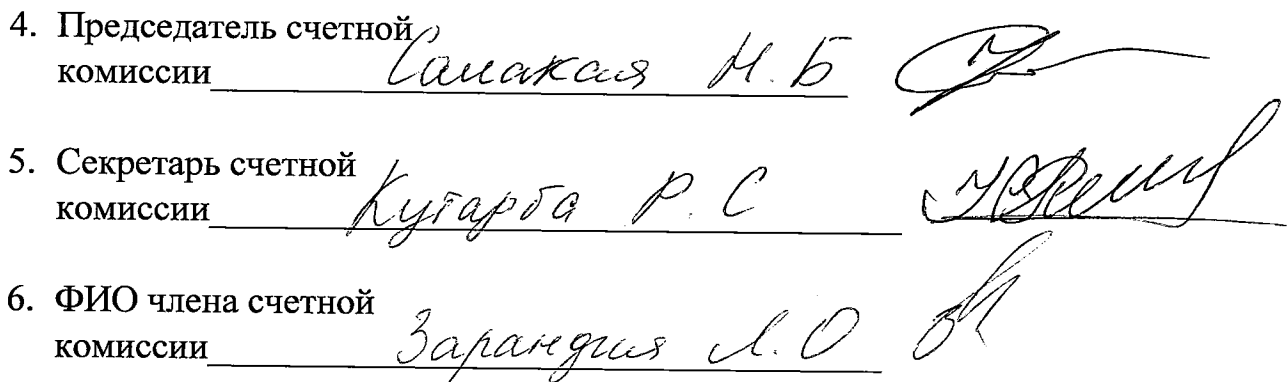 4. Председатель счетной
комиссии Самакая Н. Б
5. Секретарь счетной
комиссии Кутарба Р. С
6. ФИО члена счетной
комиссии Зарандия Л. О